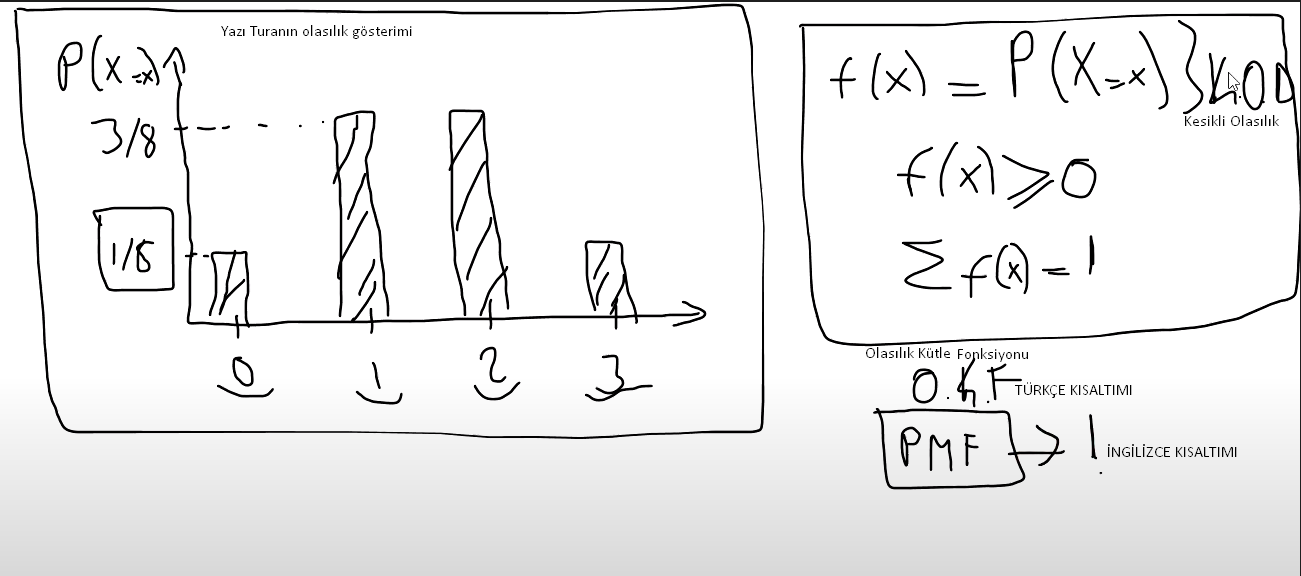 Yazı Turanın olasılık gösterimi
P(X=x)
3/8
1/8
0 1 2 3
f(x) = P(X=x) } K.O.D
Kesikli Olasılık
f(x) ⩾ 0
Σ f(x) = 1
Olasılık Kütle Fonksiyonu
O.K.F TÜRKÇE KISALTIMI
PMF → ! İNGİLİZCE KISALTIMI